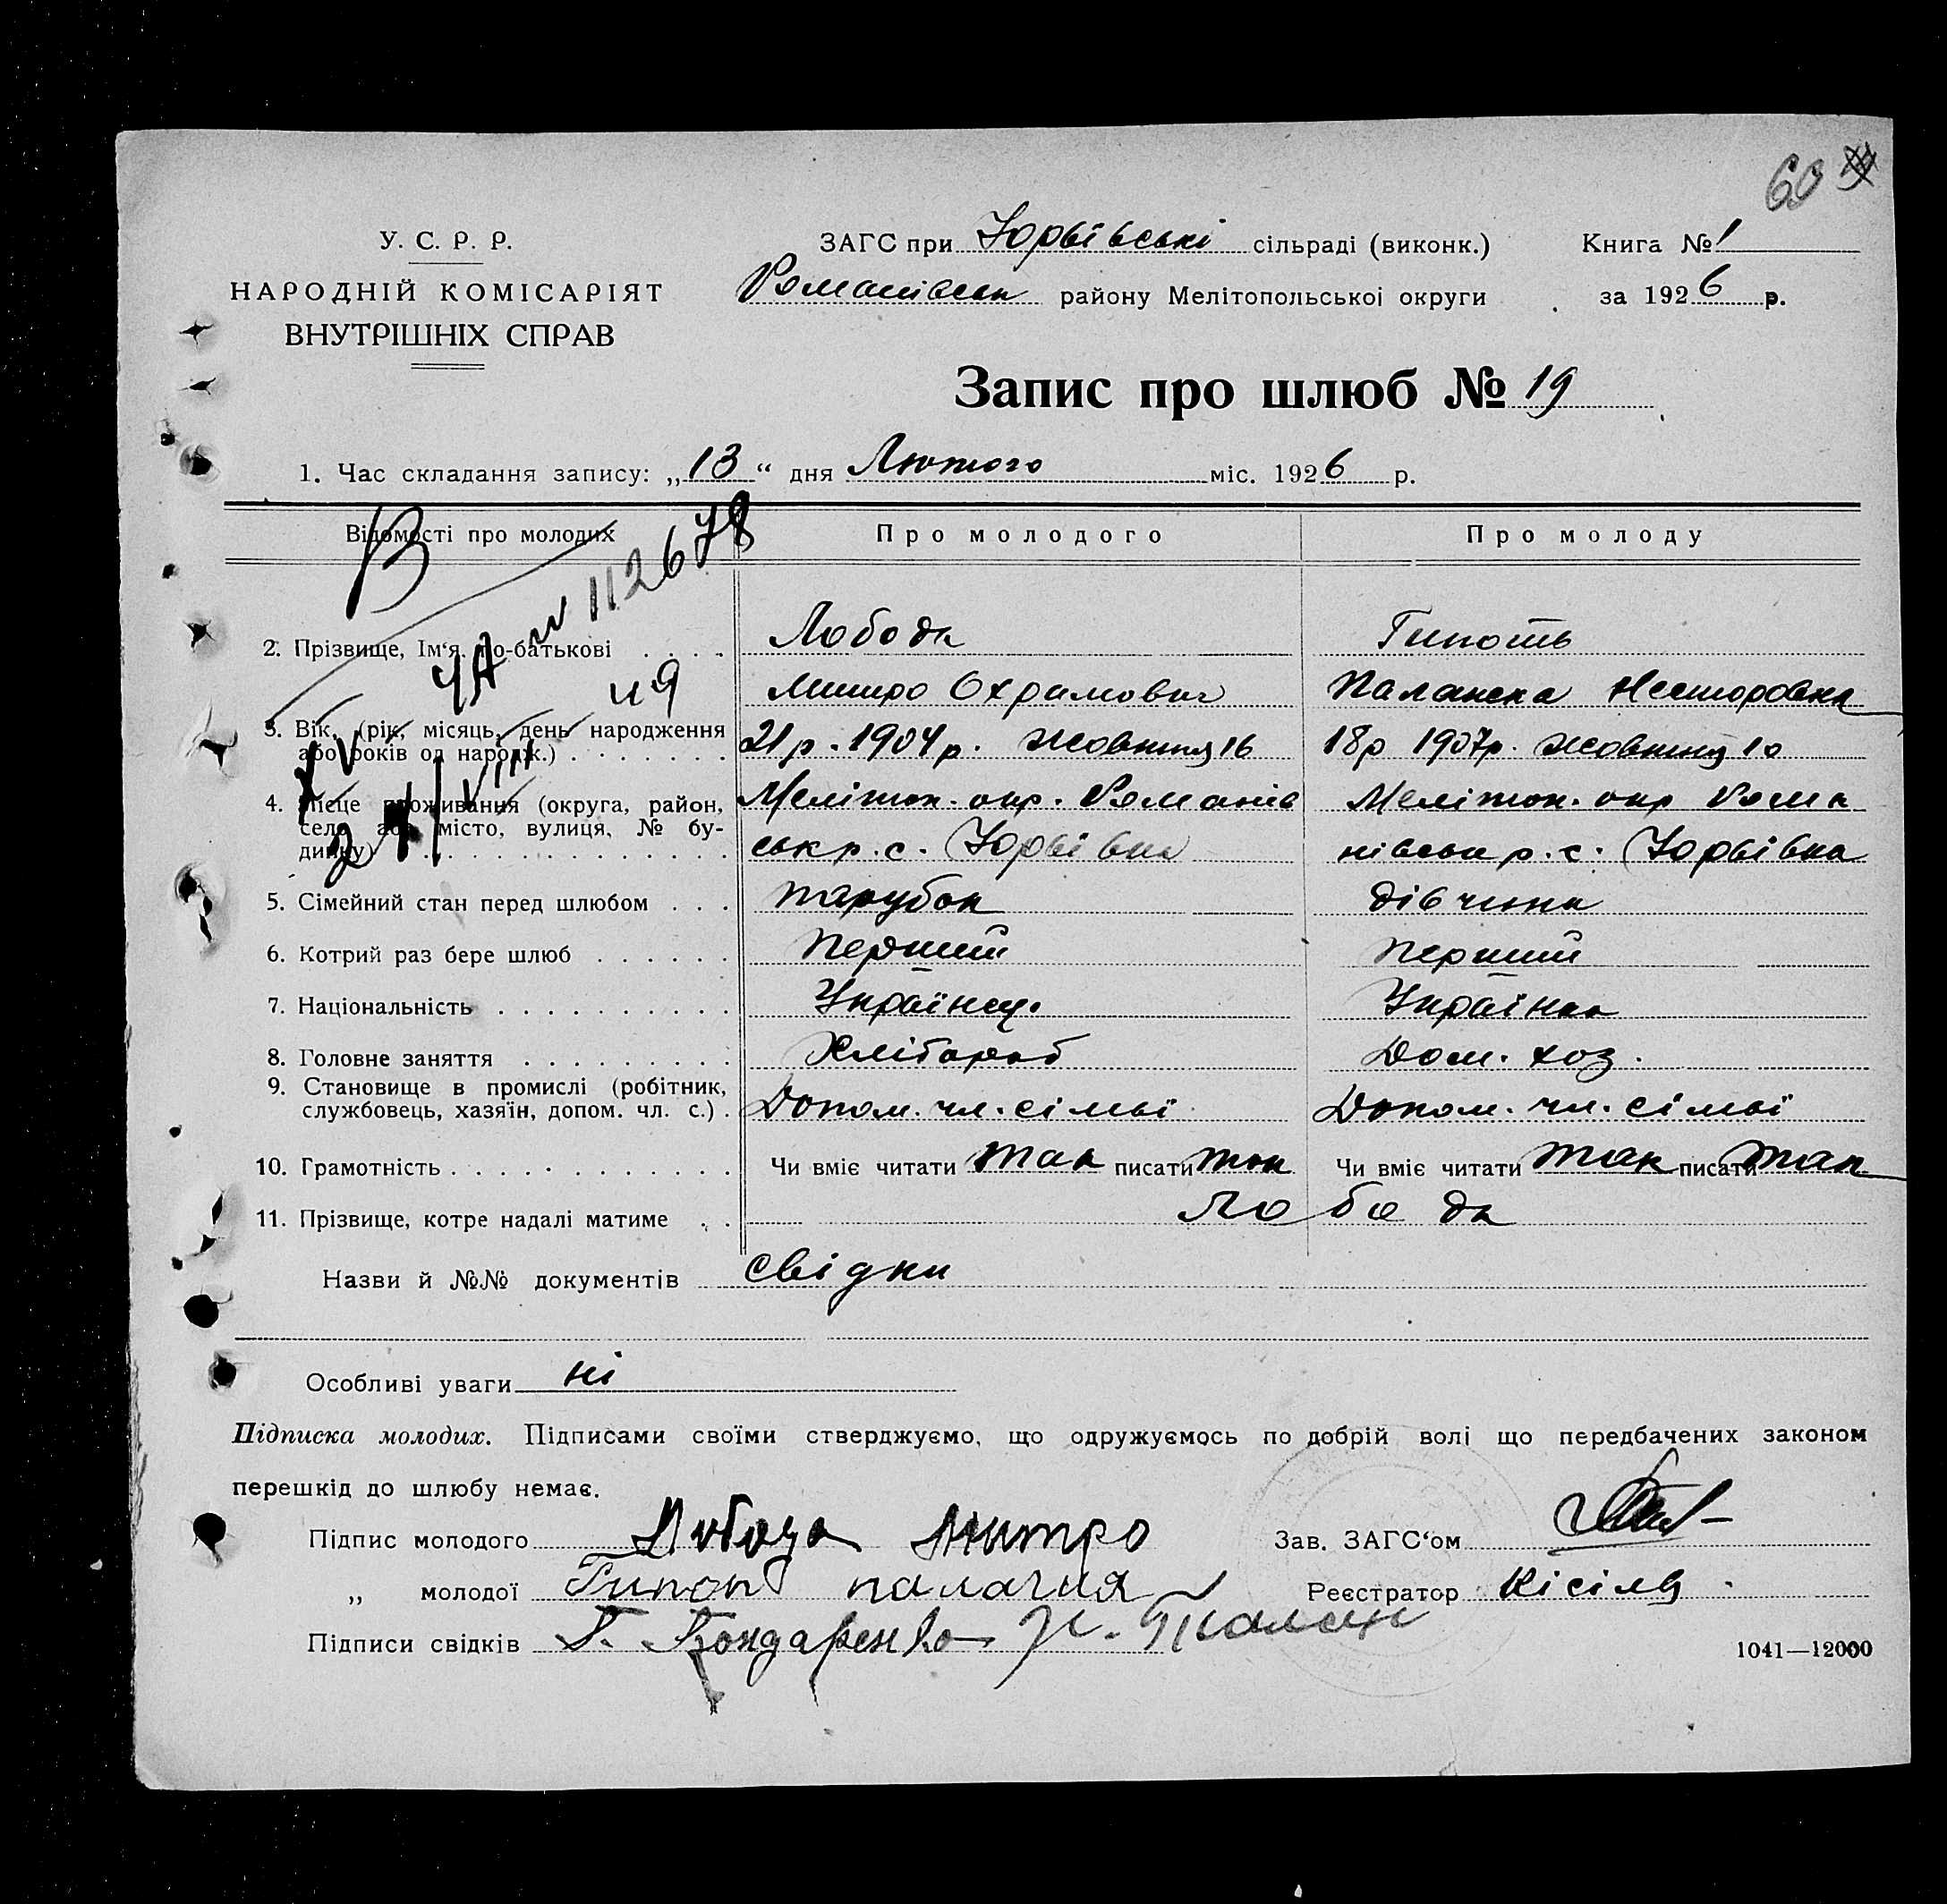 60
У. С. Р. Р.
НАРОДНІЙ КОМІСАРІЯТ
ВНУТРІШНІХ СПРАВ
ЗАГС при Юрвівські сільраді (виконк.) Книга № 1
Романівськ району Мелітопольської округи за 1926 р.
Запис про шлюб № 19
1. Час складання запису: „13“ дня Лютого міс. 1926 р.
Відомості про молодих Про молодого Про молоду
В
ЧА № 112678
49
2. Прізвище, Ім‘я, по-батькові . . . . Лобода
Митро Охримович
Гипоть
Палажка Несторовна
3. Вік, (рік, місяць, день народження
або років од народж.) . . . . . . . 21 р. 1904 р. Жовтня 16 18 р 1907р. Жовтня 10
4. Місце проживання (округа, район,
село або місто, вулиця, № бу-
динку) . . . . . . . . . . . . Меліток. окр. Романів
ськ р. с. Юрвівка
Меліток. окр Рома
нівськ р. с. Юрвівка
5. Сімейний стан перед шлюбом . . . парубок дівчина
6. Котрий раз бере шлюб . . . . . . Перший Перший
7. Національність . . . . . . . . . . Українец. Українка
8. Головне заняття . . . . . . . . . Хлібороб Дом. хоз.
9. Становище в промислі (робітник,
службовець, хазяїн, допом. чл. с.) . Допом. чл. сімьї Допом. чл. сімьї
10. Грамотність . . . . . . . . . . . . Чи вміє читати так писати так Чи вміє читати так писати так
11. Прізвище, котре надалі матиме . . Лобода
Назви й №№ документів свідки
Особливі уваги ні
Підписка молодих. Підписами своїми стверджуємо, що одружуємось по добрій волі що передбачених законом
перешкід до шлюбу немає.
Підпис молодого Лобода Митро Зав. ЗАГС‘ом
„ молодої Гипоть палагия Реєстратор Кісіль
Підписи свідків Г. Бондаренко
1041—12000